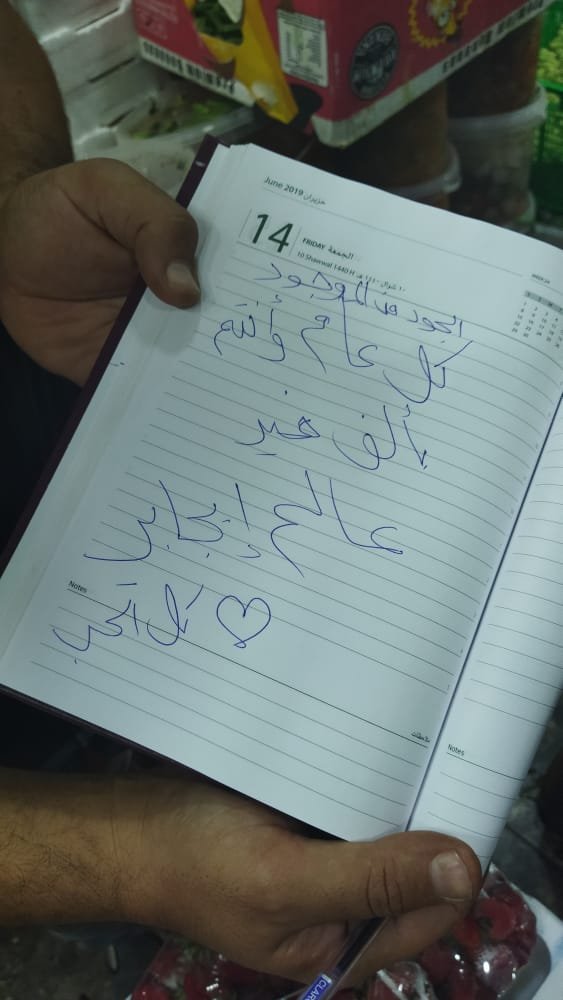 June 2019 حزيران
14
FRIDAY الجمعة
10 Shawwal 1440 H
الجود من الموجود
كل عام وأنتم
بألف خير
عالم إيجابي
كل الحب
Notes
ملاحظات
Notes
CLARO